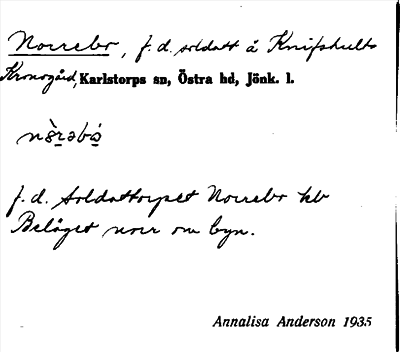 Norrebo, f. d. soldatt å Knifshults
Kronogård, Karlstorps sn, Östra hd, Jönk. l.
f. d. Soldattorpet Norrebo hb
Beläget norr om byn.
Annalisa Anderson 1935